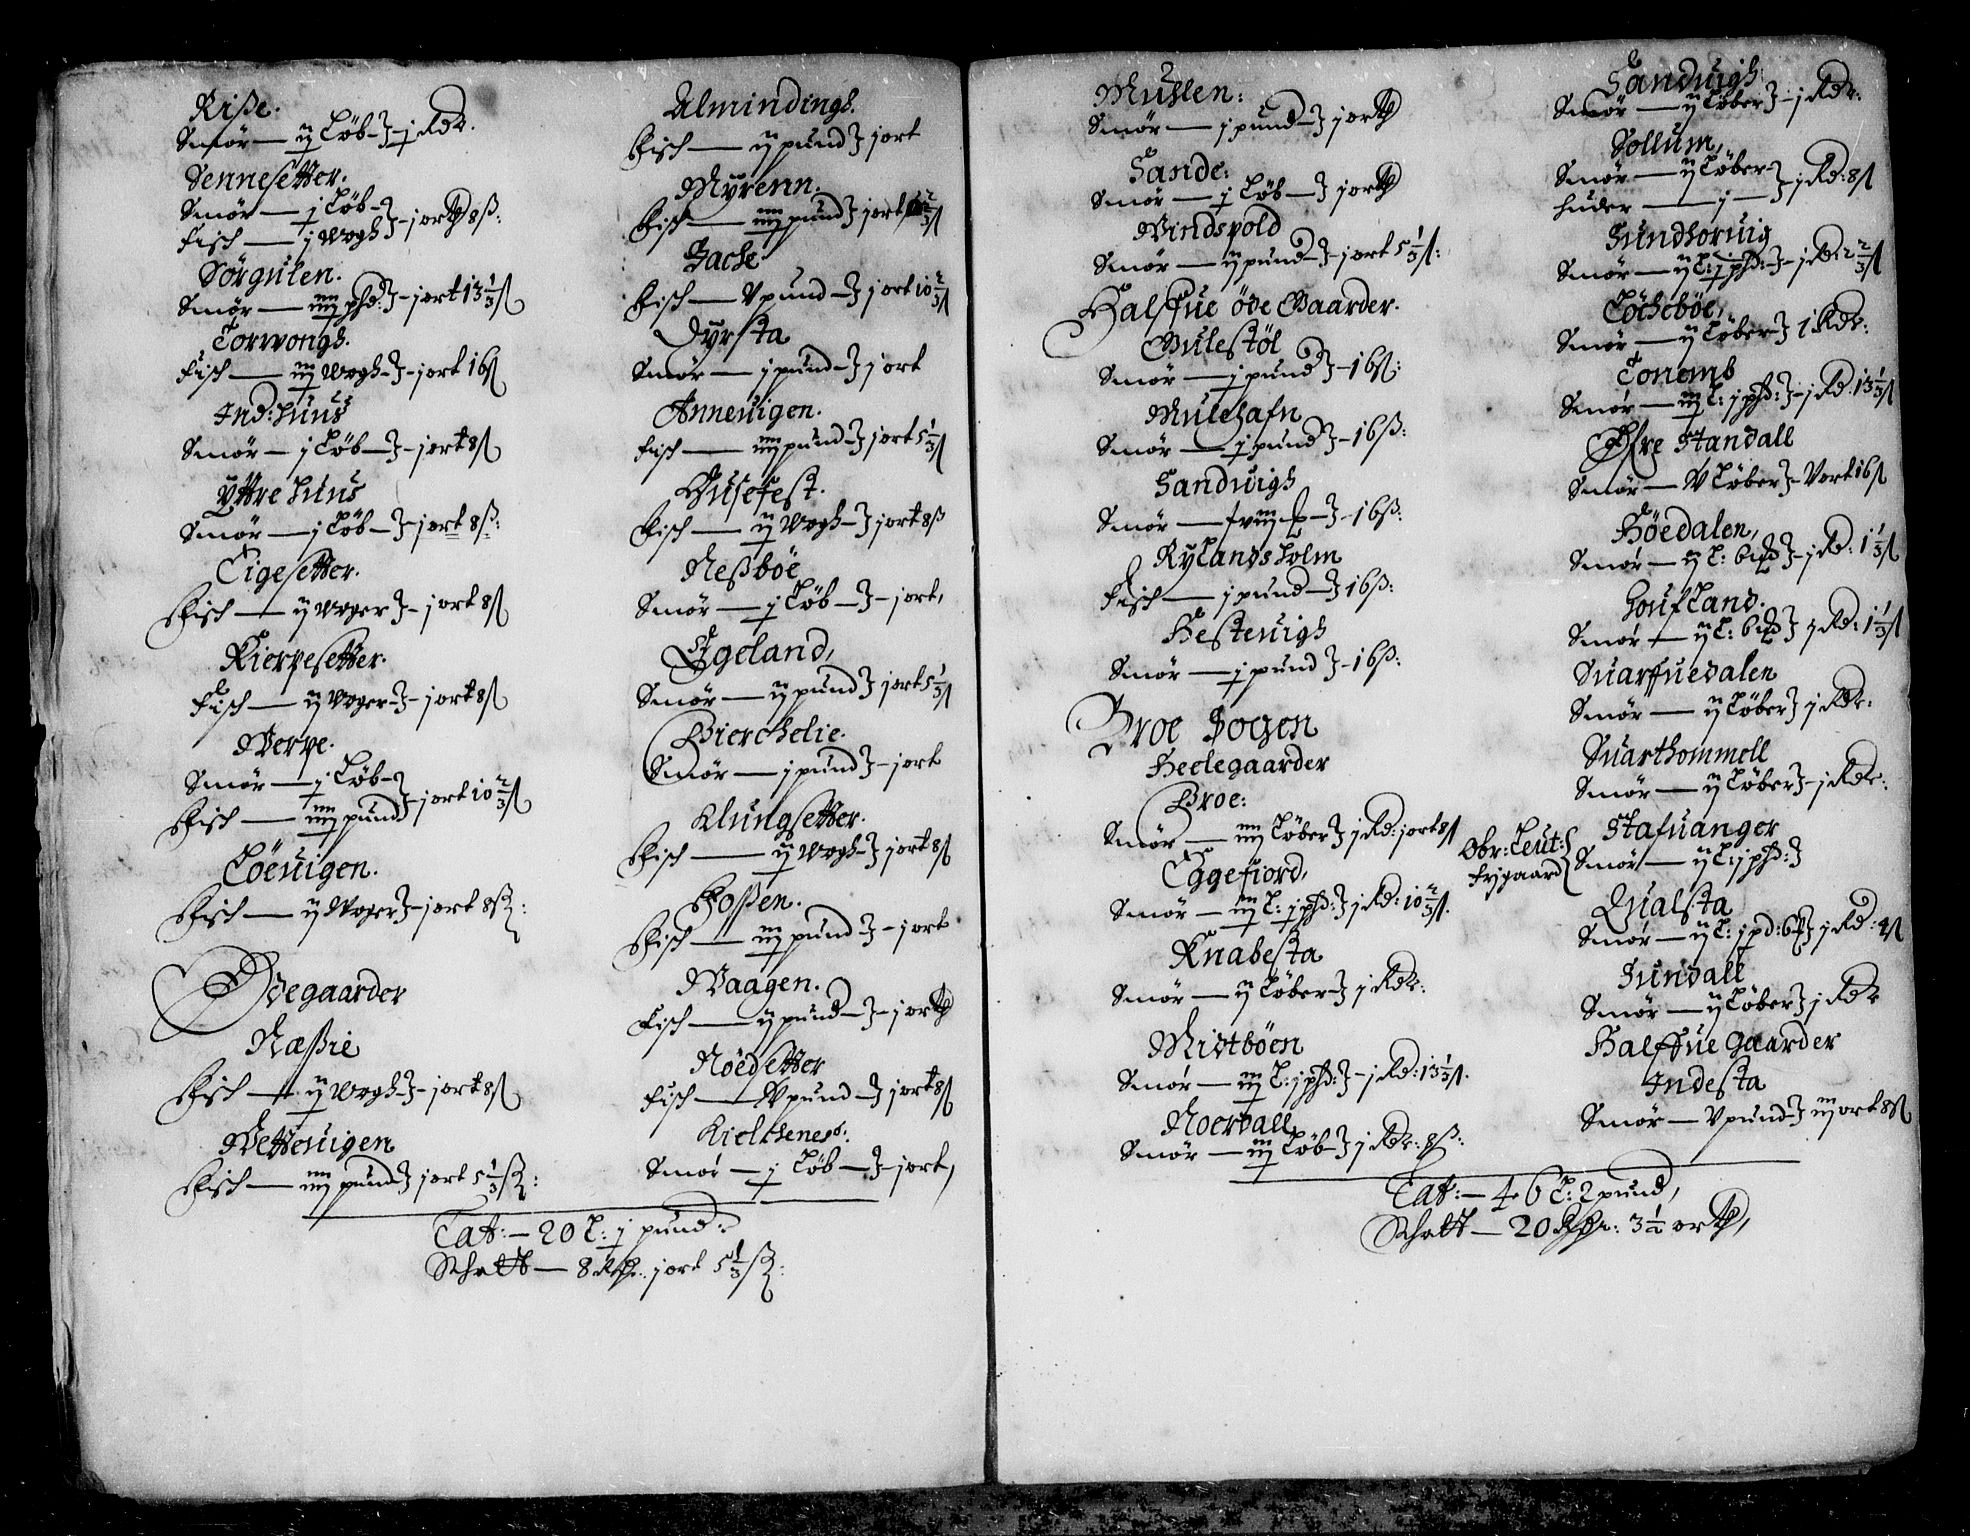 Riße.
Smør — ij Løb — j Rdr.
Sennesetter.
Smør — j Løb —
Fisch — j Wogh — j ort 8 ß:
Sørgulen.
Smør — iiij phd: — j ort 13 1/3 ß
Torwongh.
Fisch — iij Wogh — j ort 16 ß
Ind: Huus
Smør — j Løb — j ort 8 ß
Yttre Huus
Smør — j Løb — j ort 8 ß:
Tigesetter.
Fisch — ij Woger — j ort 8 ß
Kierpesetter.
Fisch — ij Woger — j ort 8 ß
Werpe.
Smør — j Løb —
Fisch — iiij pund — j ort 10 2/3 ß
Løeuigen.
Fisch — ij Woger — j ort 8 ß:
Ødegaarder
Næßie
Fisch — ij Wogh — j ort 8 ß
Wetteuigen
Fisch — iiij pund j ort 5 1/3 ß:
Almindingh.
Fisch — ij pund j ort
Myrenn:
Fisch — iiij pund j ort 2/3 ß
Hache
Fisch — V pund — j ort 10 2/3 ß
Dyrsta
Smør — j pund — j ort
Anneuigen.
Fisch — iiij pund — j ort 5 1/3 ß
Husefest.
Fisch — ij Wogh — j ort 8 ß
Neßbøe
Smør — j Løb — j ort,
Egeland,
Smør — ij pund j ort 5 1/3 ß
Bierchelie.
Smør — j pund — j ort
Klungsetter.
Fisch — ij Wogh — j ort 8 ß
Foßen.
Fisch — iij pund — j ort
Waagen.
Fisch — ij pund — j orth
Nøedsetter
Fisch — V pund — j ort 8 ß
Kielthenes:
Smør — j Løb — j ort,
Latt: — 20 L: j pund:
Schatt — 8 Rdr. j ort 5 1/3 ß:
Muhlen:
Smør — j pund — j orth
Sande:
Smør — j Løb — j orth
Windspold
Smør — ij pund — j ort 5 1/3 ß:
Halffue øde Gaarder.
Gulestøl
Smør — j pund — 16 ß:
Mulehafn
Smør — j pund — 16 ß:
Sanduigh
Smør — — 16 ß:
Rylandsholm
Fisch — j pund — 16 ß:
Hesteuigh
Smør — j pund — 16 ß:
Broe Sogen
Heelegaarder
Broe:
Smør — iiij Løber j Rd: j ort 8 ß
Eggefiord,
Smør — iij L: j phd: j Rd: 10 2/3 ß.
Knabesta
Smør — ij Løber — j Rdr:
Midtbøen
Smør — iij L: j phd: — j Rd: 13 1/3 ß.
Noerdall
Smør — iij Løb — j Rdr: 8 ß:
Sanduigh:
Smør — ij Løber — j Rdr:
Sollum,
Smør — ij Løber —
huder — j — j Rd: 8 ß
Sundhoruig
Smør — ij L: j phd: — j Rd: 2 2/3 ß
Løchebøe,
Smør — ij Løber — j Rdr:
Tonemb
Smør — iij L: j phd: — j Rd: 13 1/3 ß
Øfre Standall
Smør — V Løber — V ort 16 ß
Høedalen,
Smør — ij L: — j Rd: 1 1/3 ß
Houfland.
Smør — ij L: j Rd: 1 1/3 ß
Suarffuedalen
Smør — ij Løber j Rdr:
Suarthommell
Smør — ij Løber — j Rdr:
Stafuanger
Obr: Leut:
Frijgaard
Smør — ij L: j phd:
Qualsta
Smør — ij L: j pd: j Rd: 4 ß
Sundall
Smør — ij Løber j Rdr
Halffue Gaarder
Indesta
Smør — V pund — iij ort 8 ß
Latt: — 46 L: 2 pund,
Schatt — 20 Rdr: 3 1/2 orth,